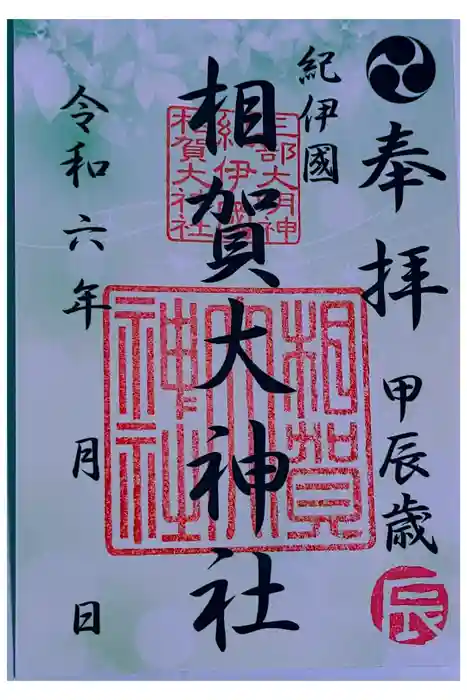 奉拝
甲辰歳
辰
紀伊國
相賀大神社
三部大明神
紀伊國
相賀大社
相賀
大
神社
令和六年 月 日